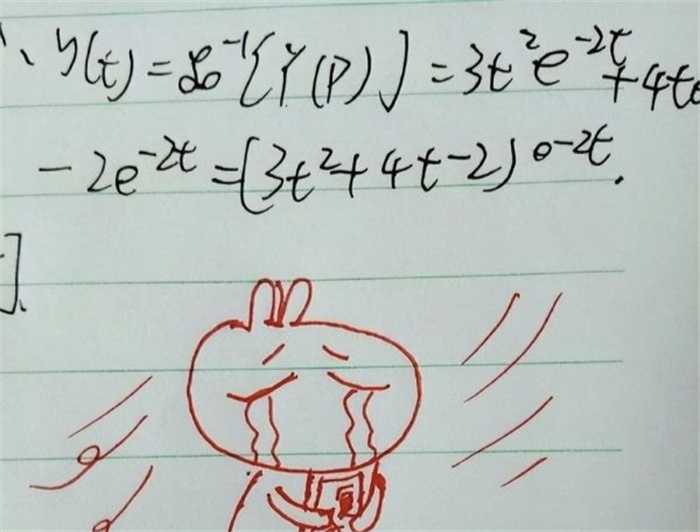 ∴ y(t) = ℒ⁻¹[Y(P)] = 3t²e^{-2t} + 4te
- 2e^{-2t} = (3t² + 4t - 2)e^{-2t}.
].